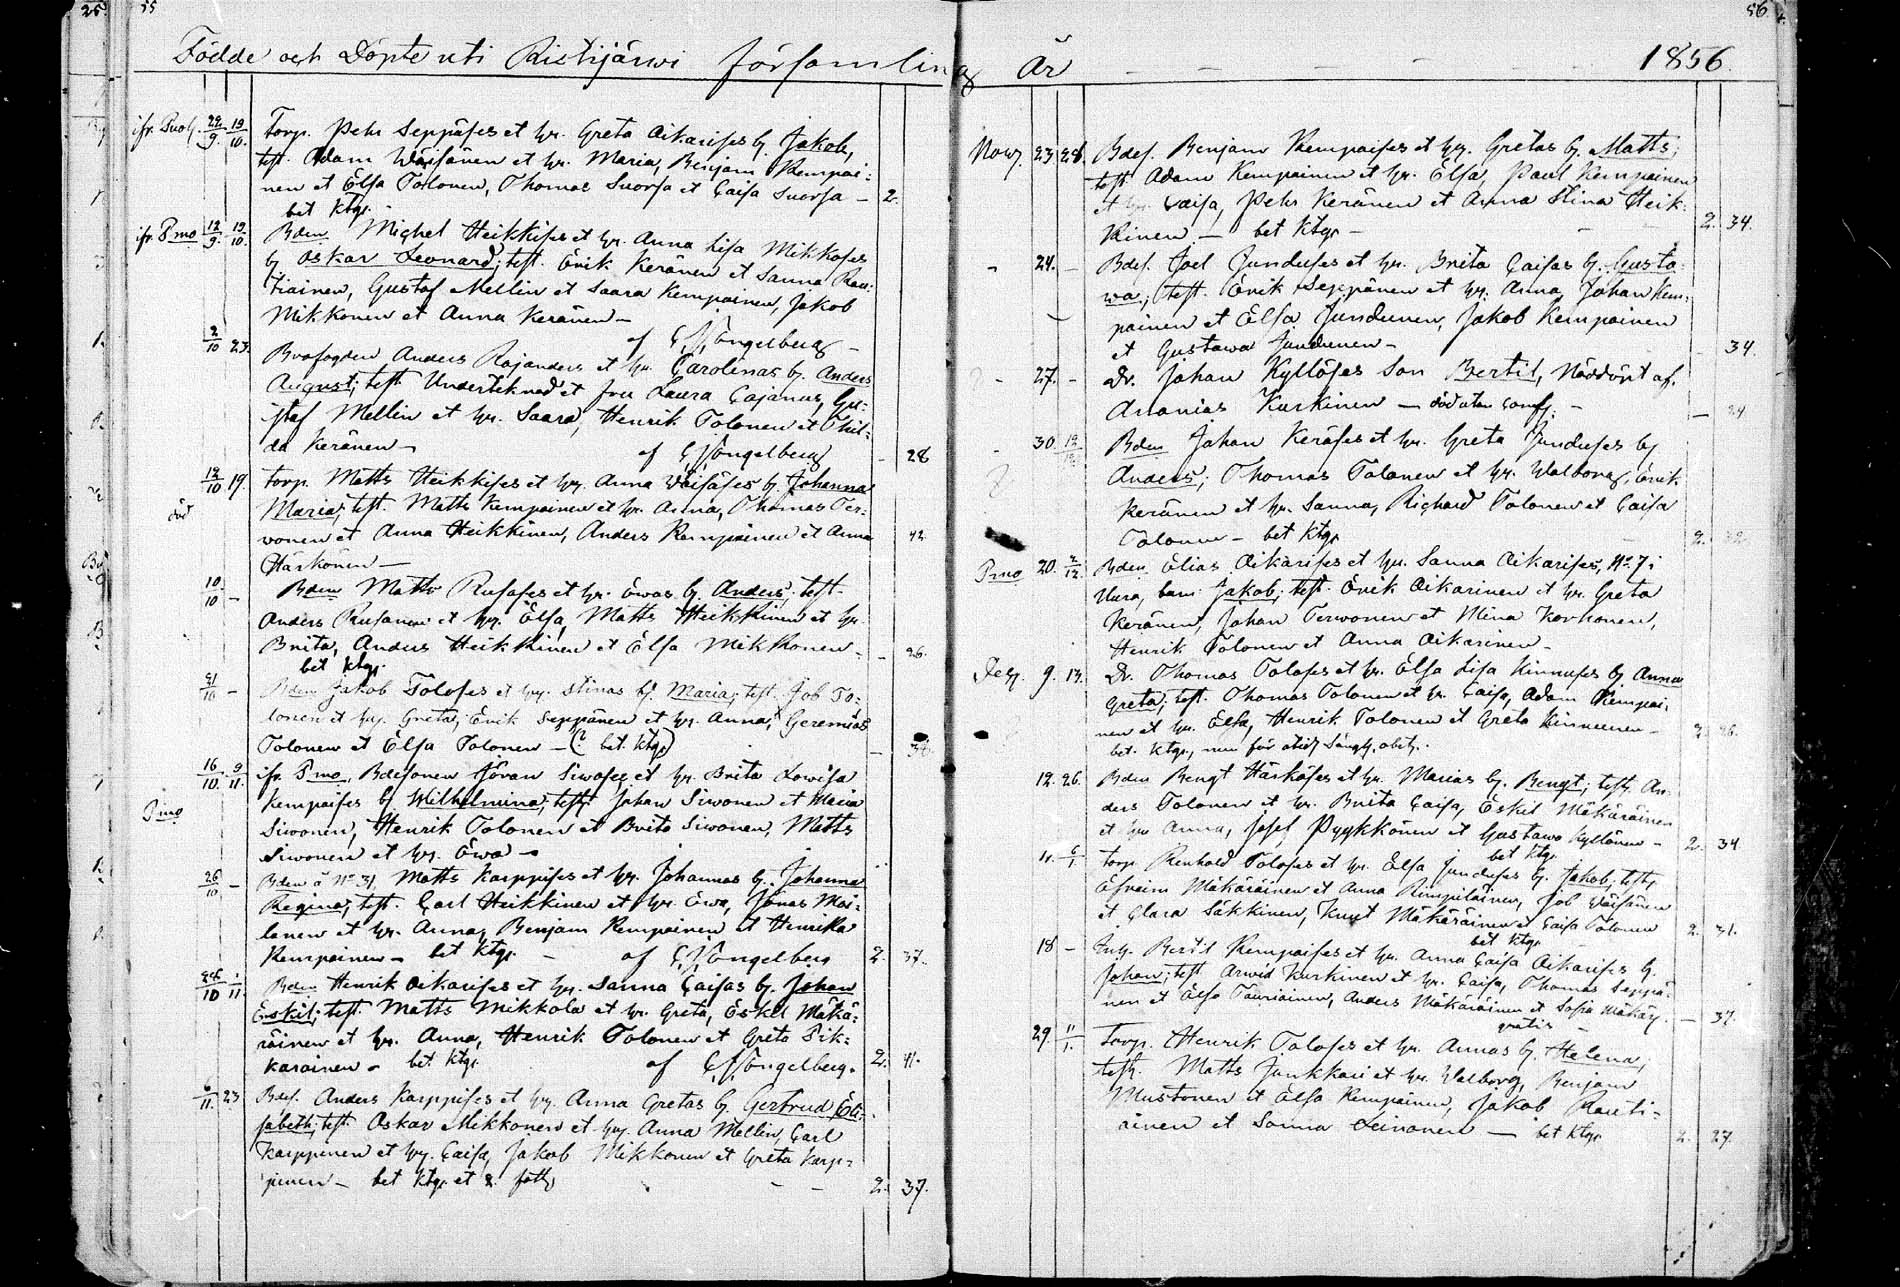 25.
55
Födde och Döpte uti Ristijärwi församling År 1856.
56
22/9. 19/10. Torp. Pehr Seppäses et hr. Greta Aikarises b. Jakob,
test. Adam Wäisänen et hr. Maria, Benjam Kempai=
nen et Elsa Tolonen, Thomas Suorsa et Caisa Suorsa – 2.
bet Ktgr.
ifr. Pmo 12/9. 19/10. Bden Michel Heikkises et hr. Anna Lisa Mikkoses
b Oskar Leonard; test. Erik Keränen et Sanna Rau=
tiainen, Gustaf Mellin et Saara Kempainen, Jakob
Mikkonen et Anna Keränen –
af Engelberg –
2/10 23. Anders Rajanders et hr. Carolinas b. Anders
August; test. Underteknad et fru Laura Cajanus, Gu=
staf Mellin et hr. Saara, Henrik Tolonen et Thil=
da Keränen –
af Engelberg – 28
12/10 19. Torp. Matts Heikkises et hr. Anna Wäisäses b. Johanna
död
Maria; test. Matts Kempainen et hr. Anna, Thomas Ter=
wonen et Anna Heikkinen, Anders Kempainen et Anna 42
Härkönen –
10/10 – Bden Matts Rusases et hr. Ewas b. Anders; test.
Anders Rusanen et hr. Elsa, Matts Heikkinen et hr.
Brita, Anders Heikkinen et Elsa Mikkonen – – 26.
bet Ktgr.
21/10 – Bden Jakob Toloses et hr. Stinas b. Maria; test. Job To=
lonen et hr. Greta, Erik Seppänen et hr. Anna, Geremias
Tolonen et Elsa Tolonen – (? bet. Ktgr) –
16/10. 9/11. ifr. Pmo, Bdesonen Göran Siwoses et hr. Brita Lowisa
Pmo
Kempaises b Wilhelmina; test. Johan Siwonen et Maria
Siwonen, Henrik Tolonen et Brita Siwonen, Matts
Siwonen et hr. Ewa –
26/10 – Bden å No 31, Matts Karppises et hr. Johannas b. Johanna
Regina; test. Carl Heikkinen et hr. Ewa, Jonas Moi=
lanen et hr. Anna, Benjam Kempainen et Henrika
Kempainen – bet Ktgr. – af Engelberg 2. 37.
/10 1/11. Bden Henrik Oikarises et hr. Sanna Caisas b. Johan
Eskil; test. Matts Mikkola et hr. Greta, Eskel Mäkä=
räinen et hr. Anna, Henrik Tolonen et Greta Pik=
karainen – bet Ktgr. af Engelberg. 2. 41.
6/11. 23 Bdef. Anders Karppises et hr. Anna Gretas b. Gertrud Eli=
sabeth; test. Oskar Mikkonen et hr. Anna Mellin, Carl
Karppinen et hr. Caisa, Jakob Mikkonen et Greta Karp=
pinen – bet Ktgr. et – – 2. 37.
Now. 23. 28. Bdef. Benjam Kempaises et hr. Gretas b. Matts;
test. Adam Kempainen et hr. Elsa, Paul Kempainen
et hr. Caisa, Pehr Keränen et Anna Stina Heik=
kinen – bet Ktgr – 2. 34.
– 24. – Bdef. Joel Junduses et hr. Brita Caisas b. Gusta=
wa; test. Erik Seppänen et hr. Anna, Johan Kem=
painen et Elsa Jundunen, Jakob Kempainen
et Gustawa Jundunen – – 34.
– 27. – Dr. Johan Kyllöses son Bertil, Nöddöpt af
Ananias Kurkinen – död utan – –
– 30. Bden Johan Keräses et hr. Greta Junduses b
Anders; Thomas Tolonen et hr. Walborg, Erik
Keränen et hr. Sanna, Richard Tolonen et Caisa
Tolonen – bet Ktgr 2.
Pmo 20. /12. Bden Elias Oikarises et hr. Sanna Oikarises, No 7 i
barn Jakob; test. Erik Oikarinen et hr. Greta
Keränen, Johan Terwonen et Mina Korhonen,
Henrik Tolonen et Anna Oikarinen –
9. Dr. Thomas Toloses et hr. Elsa Lisa Kinnuses b Anna
Greta; test. Thomas Tolonen et hr. Caisa, Adam Kempai=
nen et hr. Elsa, Henrik Tolonen et Greta Kinnunen –
bet. Ktgr.,
12. 26. Bden Bengt Härkäses et hr. Marias b. Bengt; test. An=
ders Tolonen et hr. Brita Caisa, Eskel Mäkäräinen
et hr. Anna, Josef Pyykkönen et Gustawa Kyllönen – 2. 34
bet Ktgr
6/1. Torp. Renhold Toloses et hr. Elsa Junduses b. Jakob; test.
Efraim Mäkäräinen et Anna Rimpiläinen, Job Wäisänen
et Clara Säkkinen, Knut Mäkäräinen et Caisa Tolonen 2. 31.
bet Ktgr.
18 – Bertil Kempaises et hr. Anna Caisa Oikarises b.
Johan; test. Arwid Kurkinen et hr. Caisa, Thomas Seppä=
nen et Elsa Tauriainen, Anders Mäkäräinen et Sofia Mäkär. – 37.
gratis
29. 11/1. Torp. Henrik Toloses et hr. Annas b. Helena;
test. Matts Junkkari et hr. Walborg, Benjam
Mustonen et Elsa Kempainen, Jakob Rauti=
ainen et Sanna Leinonen – bet Ktgr 2. 27.